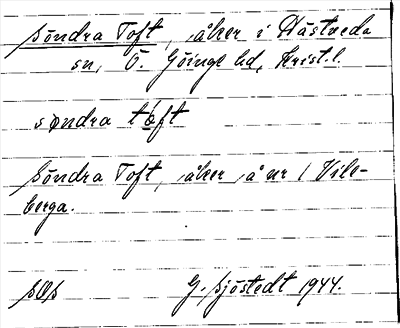 Söndra Toft, åker i Hästveda
sn, Ö. Göinge hd, Krist.l.
søndra tɵft
Söndra Toft, åker å nr 1 Vile-
berga.
G. Sjöstedt 1944.